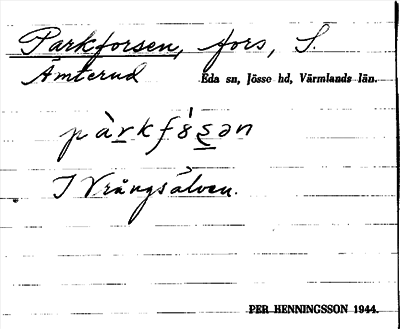 Parkforsen, fors, S.
Ämterud Eda sn, Jösse hd, Värmlands län.
I Vrångsälven.
PER HENNINGSSON 1944.